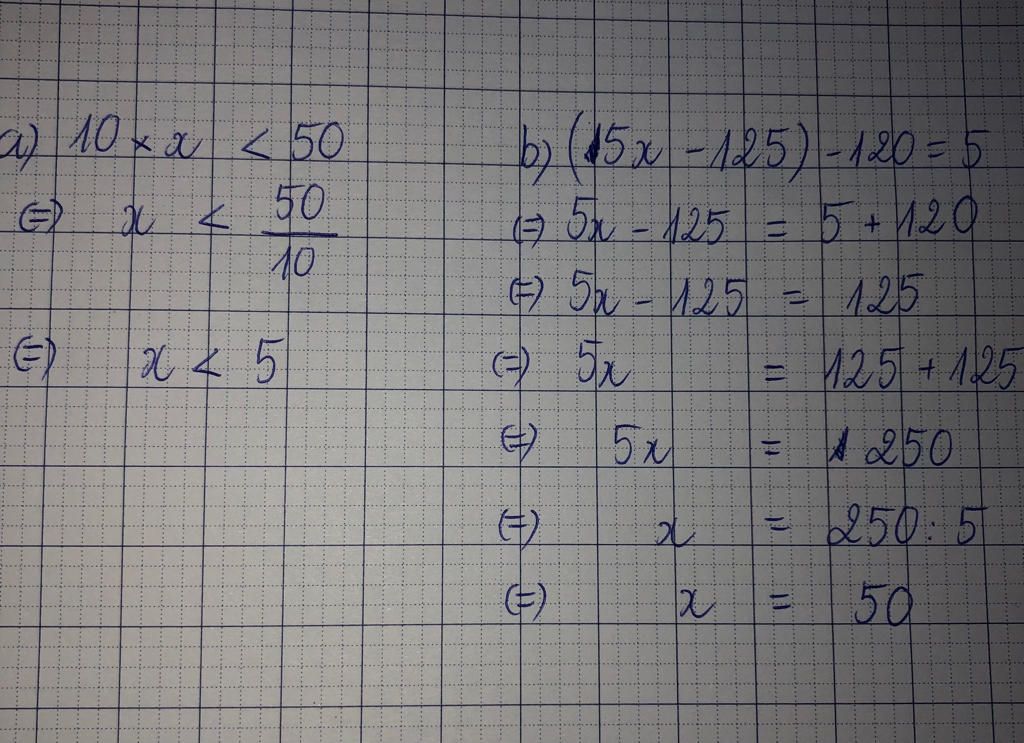 a) 10 × x < 50
(=) x < 50/10
(=) x < 5
b) (5x - 125) - 120 = 5
(=) 5x - 125 = 5 + 120
(=) 5x - 125 = 125
(=) 5x = 125 + 125
(=) 5x = 250
(=) x = 250 : 5
(=) x = 50